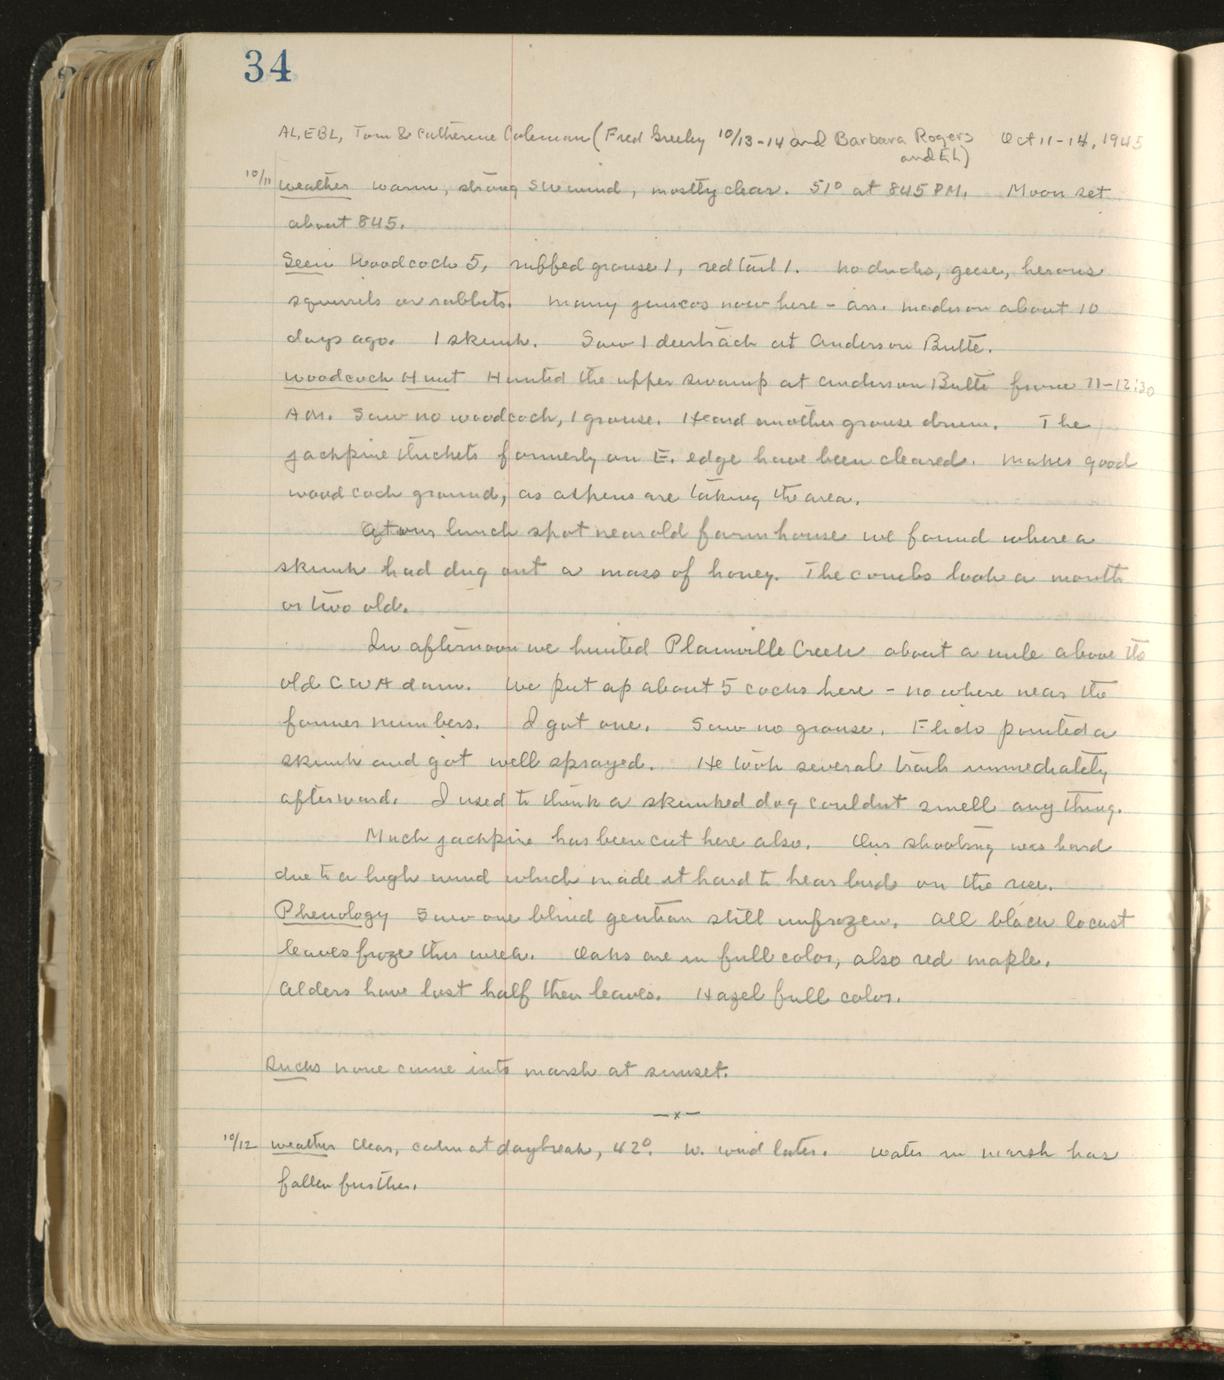 34
AL, EBL, Tom & Catherine Coleman (Fred Greeley 10/13-14 and Barbara Rogers Oct 11-14, 1945
and EL)
10/11 Weather warm, strong SW wind, mostly clear. 51° at 845 PM. Moon set
about 845.
Seen Woodcock 5, ruffed grouse 1, redtail 1. No ducks, geese, herons
squirrels or rabbits. Many juncos now here - arr. Madison about 10
days ago. 1 skunk. Saw 1 deertrack at Anderson Butte.
Woodcock Hunt Hunted the upper swamp at Anderson Butte from 11-12:30
AM. Saw no woodcock, 1 grouse. Heard another grouse drum. The
jackpine thickets formerly on E. edge have been cleared. Makes good
woodcock ground, as aspens are taking the area.
At our lunch spot near old farmhouse we found where a
skunk had dug out a mass of honey. The combs look a month
or two old.
In afternoon we hunted Plainville Creek about a mile above the
old CWA dam. We put up about 5 cocks here - no where near the
former numbers. I got one. Saw no grouse. Flick pointed a
skunk and got well sprayed. He took several trails immediately
afterward. I used to think a skunked dog couldnt smell any thing.
Much jackpine has been cut here also. Our shooting was hard
due to a high wind which made it hard to hear birds on the rise.
Phenology Saw one blind gentian still unfrozen. All black locust
leaves froze this week. Oaks are in full color, also red maple.
Alders have lost half their leaves. Hazel full color.
Ducks none came into marsh at sunset.
—x—
10/12 Weather Clear, calm at daybreak, 42°. W. wind later. Water in marsh has
fallen further.